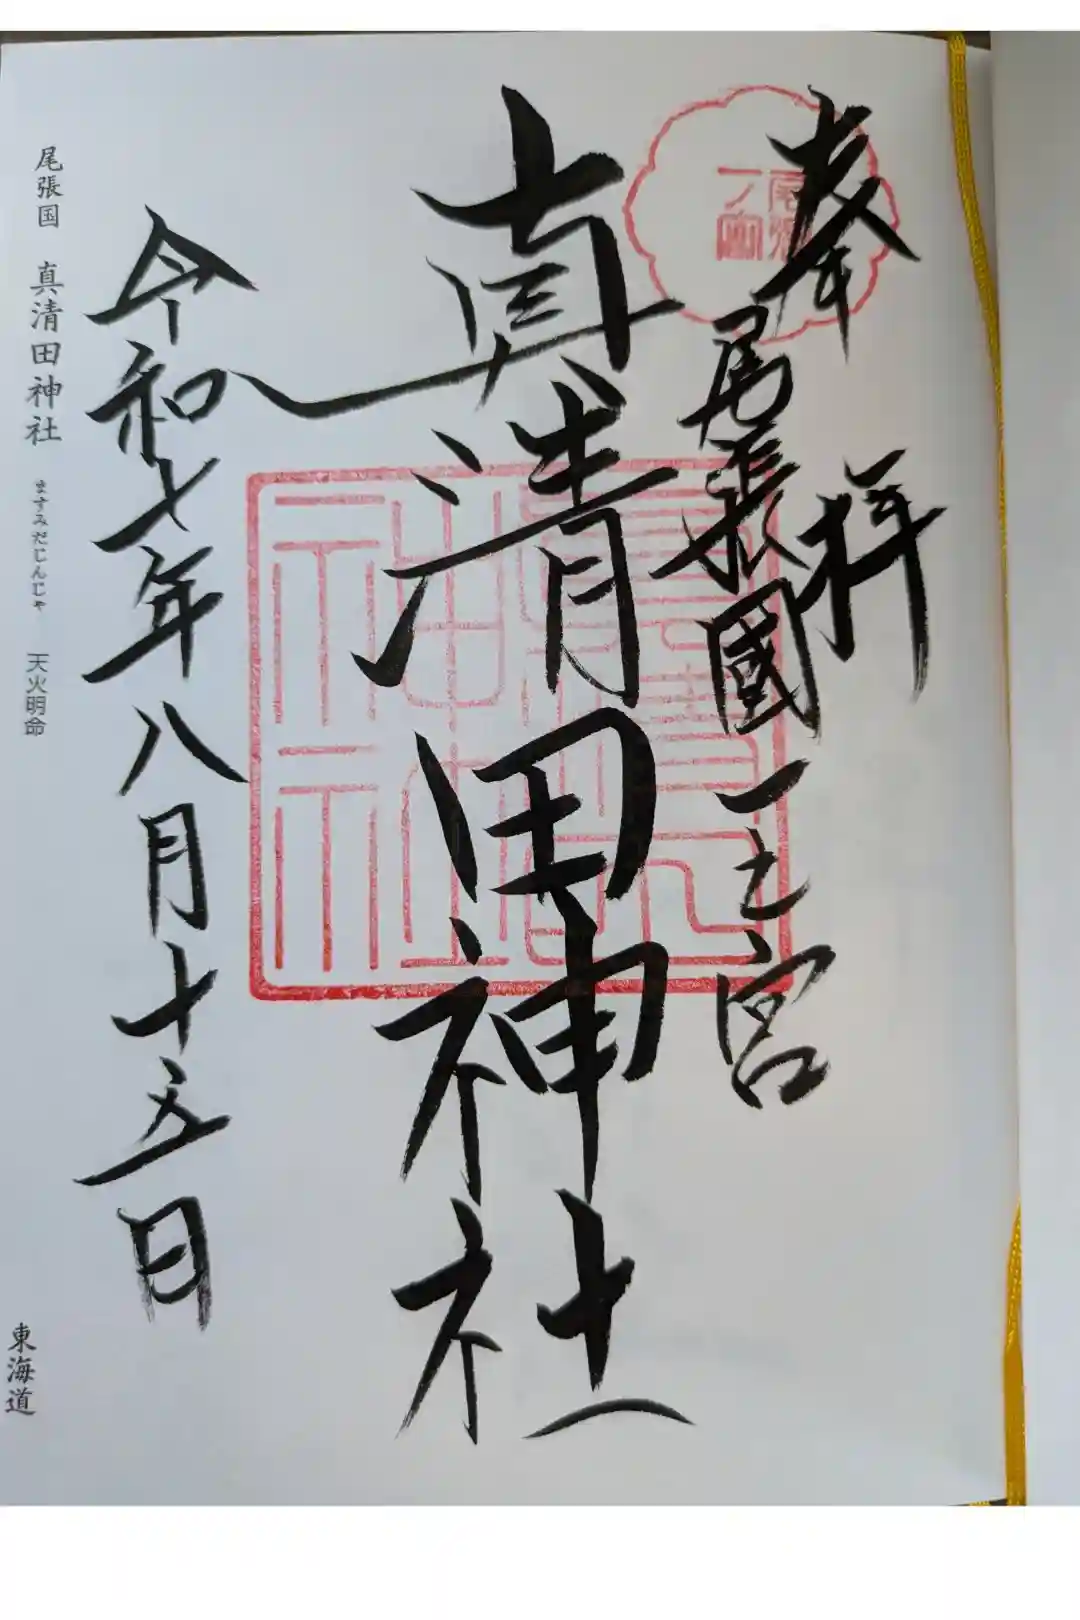 奉拝
尾張國一之宮
真清田神社
令和七年八月十五日
尾張国 真清田神社 ますみだじんじゃ 天火明命
東海道
尾張
一ノ宮